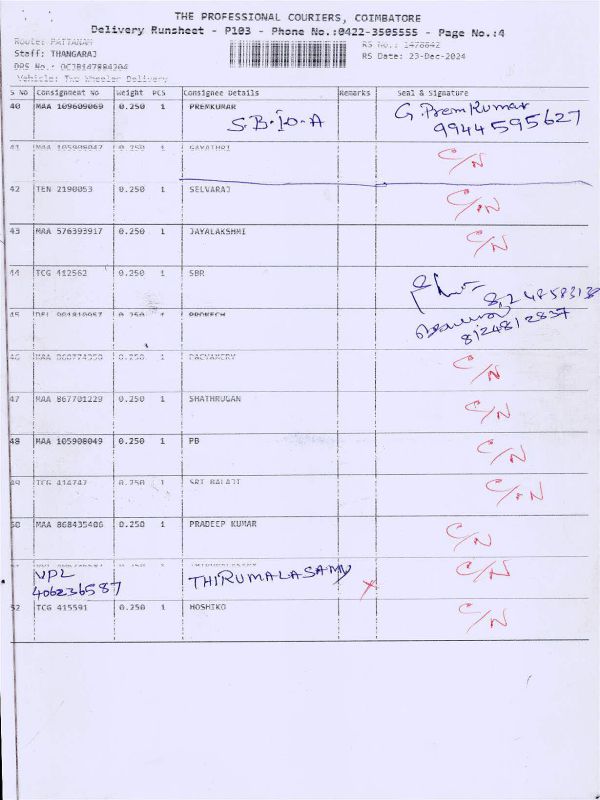 THE PROFESSIONAL COURIERS, COIMBATORE
Delivery Runsheet - P103 - Phone No.:0422-3505555 - Page No.:4
Route: PATTANAM
RS No.: 1478642
Staff: THANGARAJ
RS Date: 23-Dec-2024
DRS No.: OCJB147884204
Vehicle: Two Wheeler Delivery
S NO Consignment No Weight PCS Consignee Details Remarks Seal & Signature
40 MAA 109609069 0.250 1 PREMKUMAR G. Prem Kumar
S.B.IO-A 9944595627
41 MAA 105908047 0.250 1 GAYATHRI C/N
42 TEN 2190053 0.250 1 SELVARAJ C/N
43 MAA 576393917 0.250 1 JAYALAKSHMI C/N
44 TCG 412562 0.250 1 SBR
45 0.250 1
8124812837
46 MAA 868774350 0.250 1 C/N
47 MAA 867701229 0.250 1 SHATHRUGAN C/N
48 MAA 105908049 0.250 1 PB C/N
49 TCG 414747 0.250 1 SRI BALAJI C/N
50 MAA 868435406 0.250 1 PRADEEP KUMAR C/N
VPL THIRUMALASAMY X C/N
406236587
52 TCG 415591 0.250 1 HOSHIKO C/N